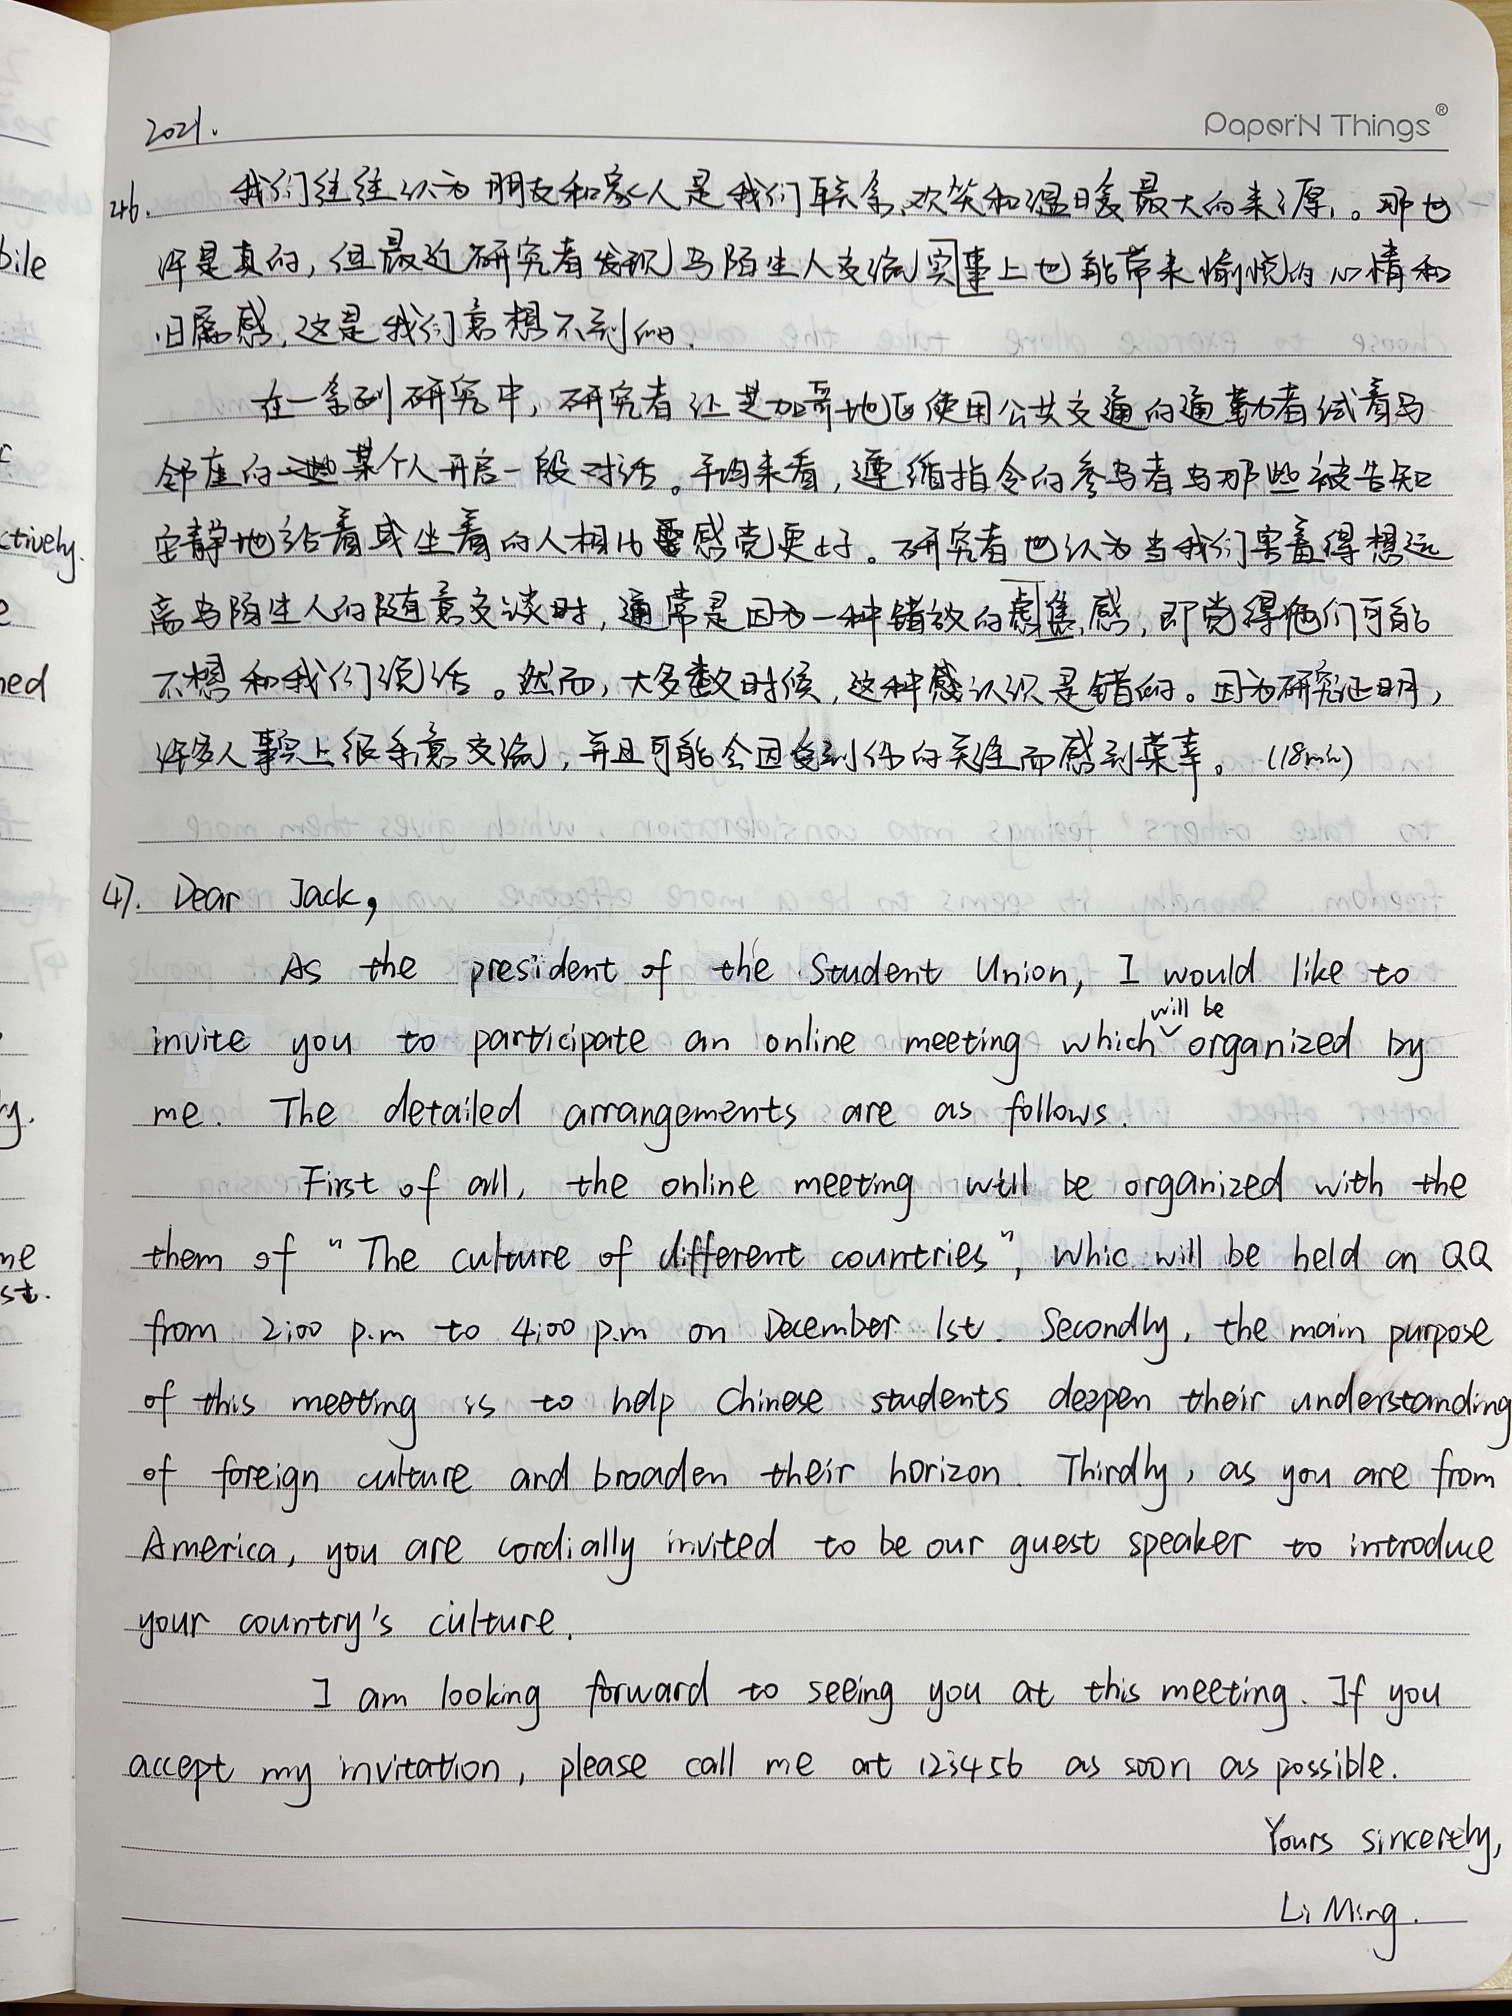 PaperN Things®
2021.
46. 我们往往认为朋友和家人是我们联系、欢笑和温暖最大的来源。那也
许是真的，但最近研究者发现与陌生人交流实事上也能带来愉悦的心情和
归属感，这是我们意想不到的。
在一系列研究中，研究者让芝加哥地区使用公共交通的通勤者试着与
邻座的某个人开启一段对话。平均来看，遵循指令的参与者与那些被告知
安静地站着或坐着的人相比感觉更好。研究者也认为当我们害羞得想远
离与陌生人的随意交谈时，通常是因为一种错放的虑焦感，即觉得他们可能
不想和我们说话。然而，大多数时候，这种认识是错的。因为研究证明，
许多人事实上很乐意交流，并且可能会因受到你的关注而感到荣幸。(18min)
47. Dear Jack,
As the president of the Student Union, I would like to
invite you to participate an online meeting which will be organized by
me. The detailed arrangements are as follows.
First of all, the online meeting will be organized with the
them of "The culture of different countries", whic will be held on QQ
from 2:00 p.m to 4:00 p.m on December 1st. Secondly, the main purpose
of this meeting is to help Chinese students deepen their understanding
of foreign culture and broaden their horizon. Thirdly, as you are from
America, you are cordially invited to be our guest speaker to introduce
your country's culture.
I am looking forward to seeing you at this meeting. If you
accept my invitation, please call me at 123456 as soon as possible.
Yours sincerely,
Li Ming.
bile
ctively.
ned
st.